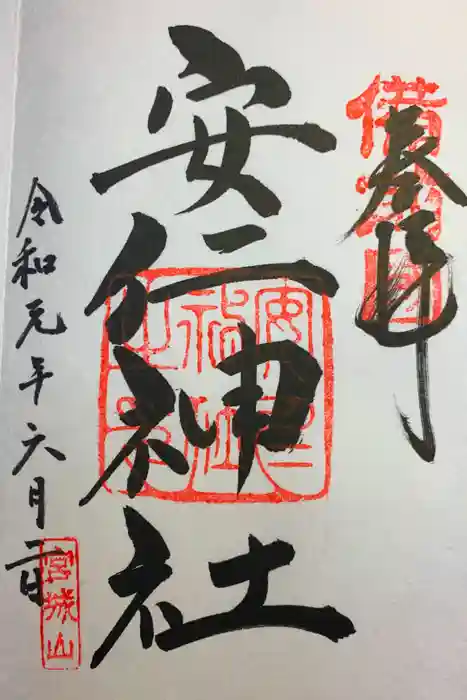 奉拝
備前國
安仁神社
安仁神社
令和元年六月一日
宮城山